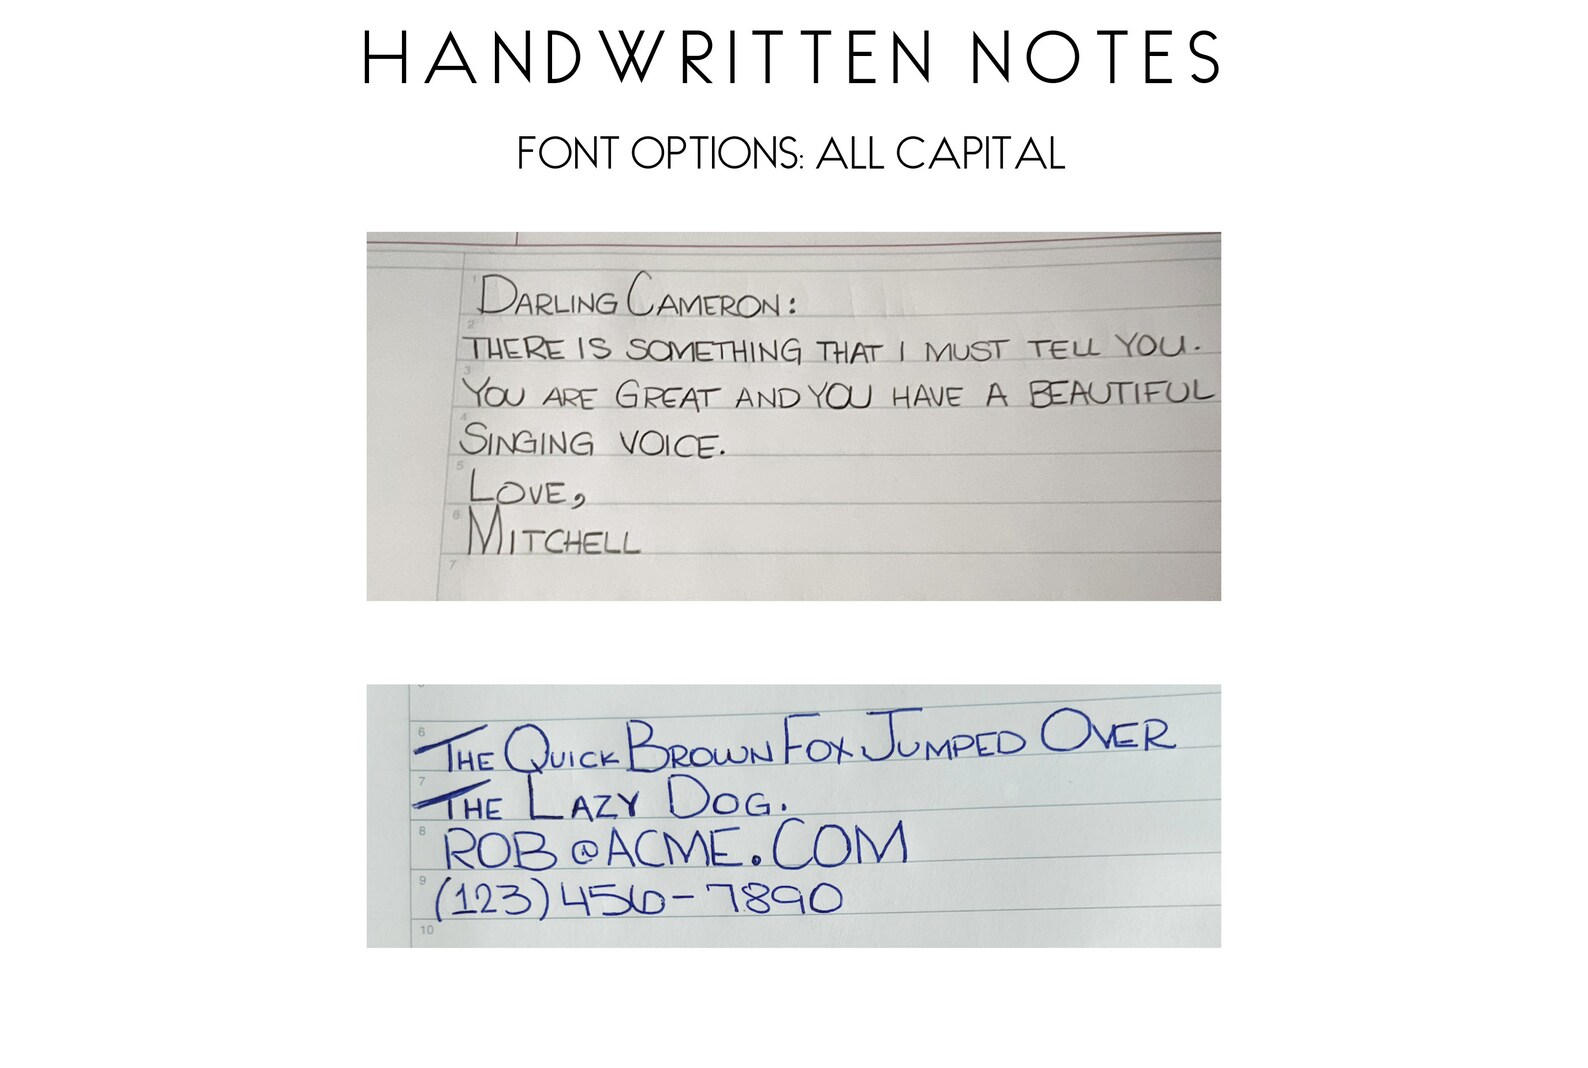 HANDWRITTEN NOTES
FONT OPTIONS: ALL CAPITAL
1
DARLING CAMERON:
2
THERE IS SOMETHING THAT I MUST TELL YOU.
3
YOU ARE GREAT AND YOU HAVE A BEAUTIFUL
4
SINGING VOICE.
5
LOVE,
6
MITCHELL
7
6
THE QUICK BROWN FOX JUMPED OVER
7
THE LAZY DOG.
8
ROB@ACME.COM
9
(123) 456-7890
10